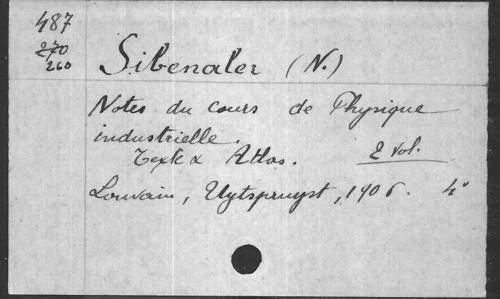 487
270
260
Sibenaler (N.)
Notes du cours de Physique
industrielle.
Texte & Atlas. 2 vol.
Louvain, Uytspruyst, 1906. 4°